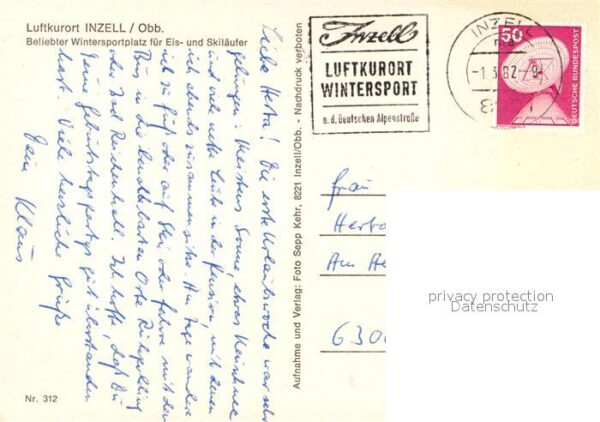 Luftkurort INZELL / Obb.
Beliebter Wintersportplatz für Eis- und Skiläufer
Liebe Herta! Die erste Urlaubswoche war sehr
gelungen. Meistens Sonne, etwas Neuschnee
und viele nette Leute in der Pension, mit denen
ich abends zusammen sitze. Am Tage wandere
ich zu Fuß oder auf Ski oder fahre mit dem
Bus in die benachbarten Orte Ruhpolding
oder Bad Reichenhall. Ich hoffe, daß Du
Deine Geburtstags gut überstanden
hast. Viele herzliche Grüße
Dein Klaus
Nr. 312
Aufnahme und Verlag: Foto Sepp Kehr, 8221 Inzell/Obb. - Nachdruck verboten
Inzell
LUFTKURORT
WINTERSPORT
a.d. Deutschen Alpenstraße
INZELL
-1.3.82-9
50
DEUTSCHE BUNDESPOST
Frau
Herta
Am
630
privacy protection
Datenschutz